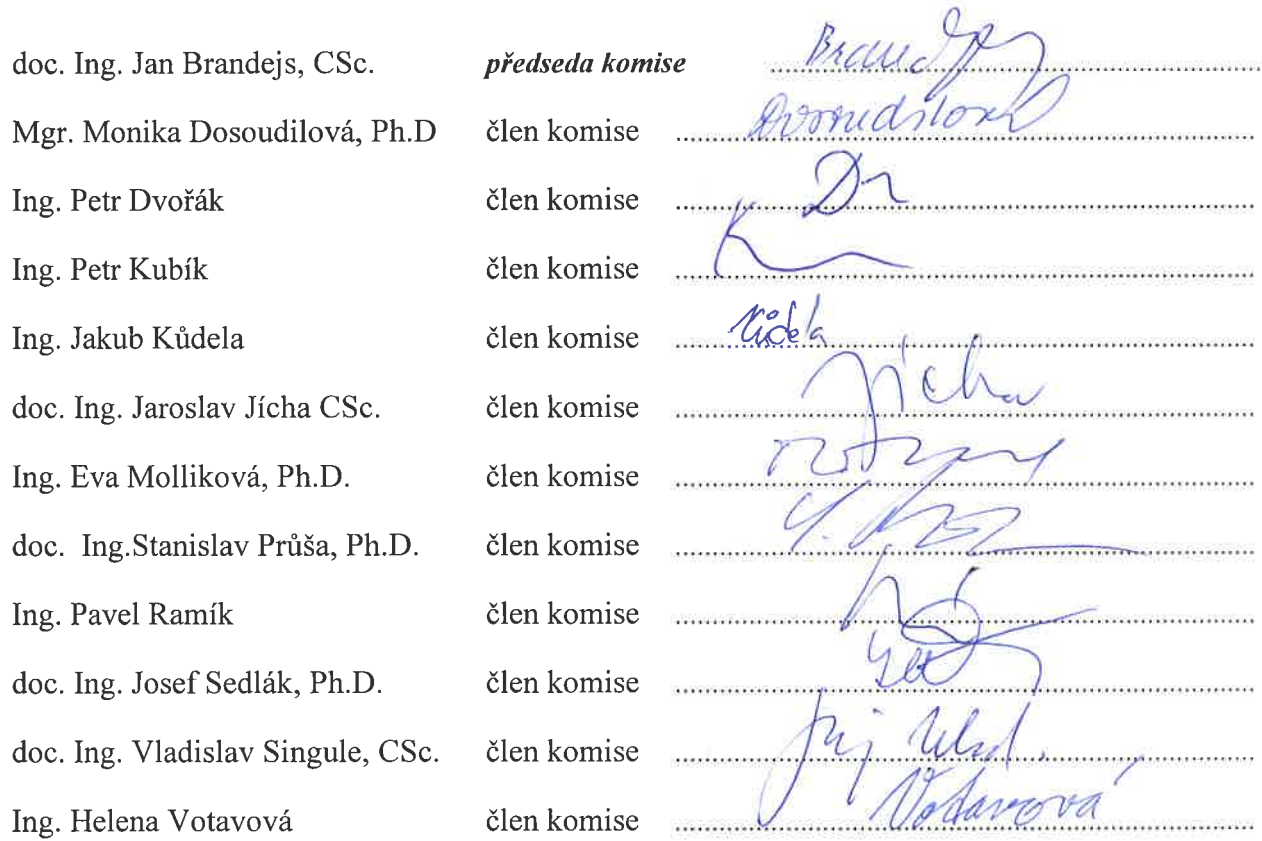 doc. Ing. Jan Brandejs, CSc. předseda komise
Mgr. Monika Dosoudilová, Ph.D člen komise Dosoudilová
Ing. Petr Dvořák člen komise
Ing. Petr Kubík člen komise
Ing. Jakub Kůdela člen komise Kůdela
doc. Ing. Jaroslav Jícha CSc. člen komise Jícha
Ing. Eva Molliková, Ph.D. člen komise
doc. Ing.Stanislav Průša, Ph.D. člen komise
Ing. Pavel Ramík člen komise
doc. Ing. Josef Sedlák, Ph.D. člen komise
doc. Ing. Vladislav Singule, CSc. člen komise
Ing. Helena Votavová člen komise Votavová